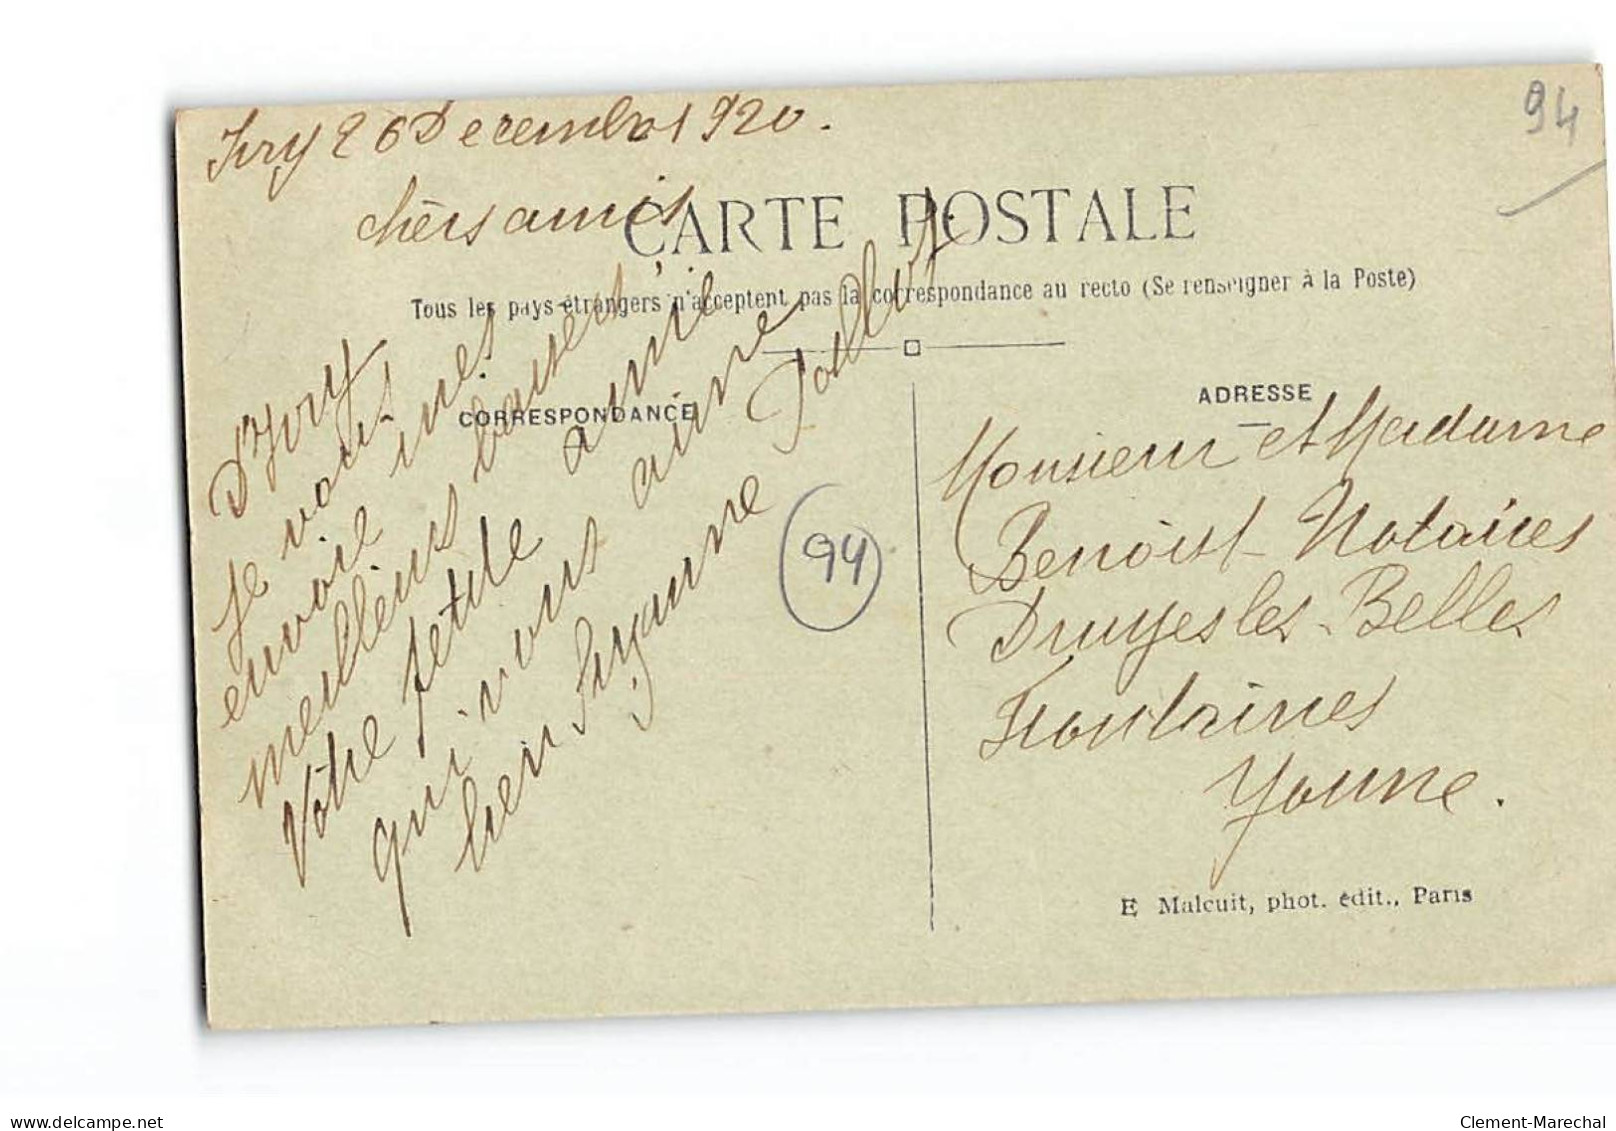 Ivry 26 Decembre 1920.
94
chers amis
CARTE POSTALE
Tous les pays étrangers n'acceptent pas la correspondance au recto (Se renseigner à la Poste)
CORRESPONDANCE
D'Ivry
Je vous
envoie mes
meilleurs baisers
Votre petite amie
qui vous aime
bien Suzanne
94
ADRESSE
Monsieur et Madame
Benoist Notaires
Druyes les Belles
Fontaines
Yonne.
E Malcuit, phot. édit., Paris
delcampe.net
Clement-Marechal